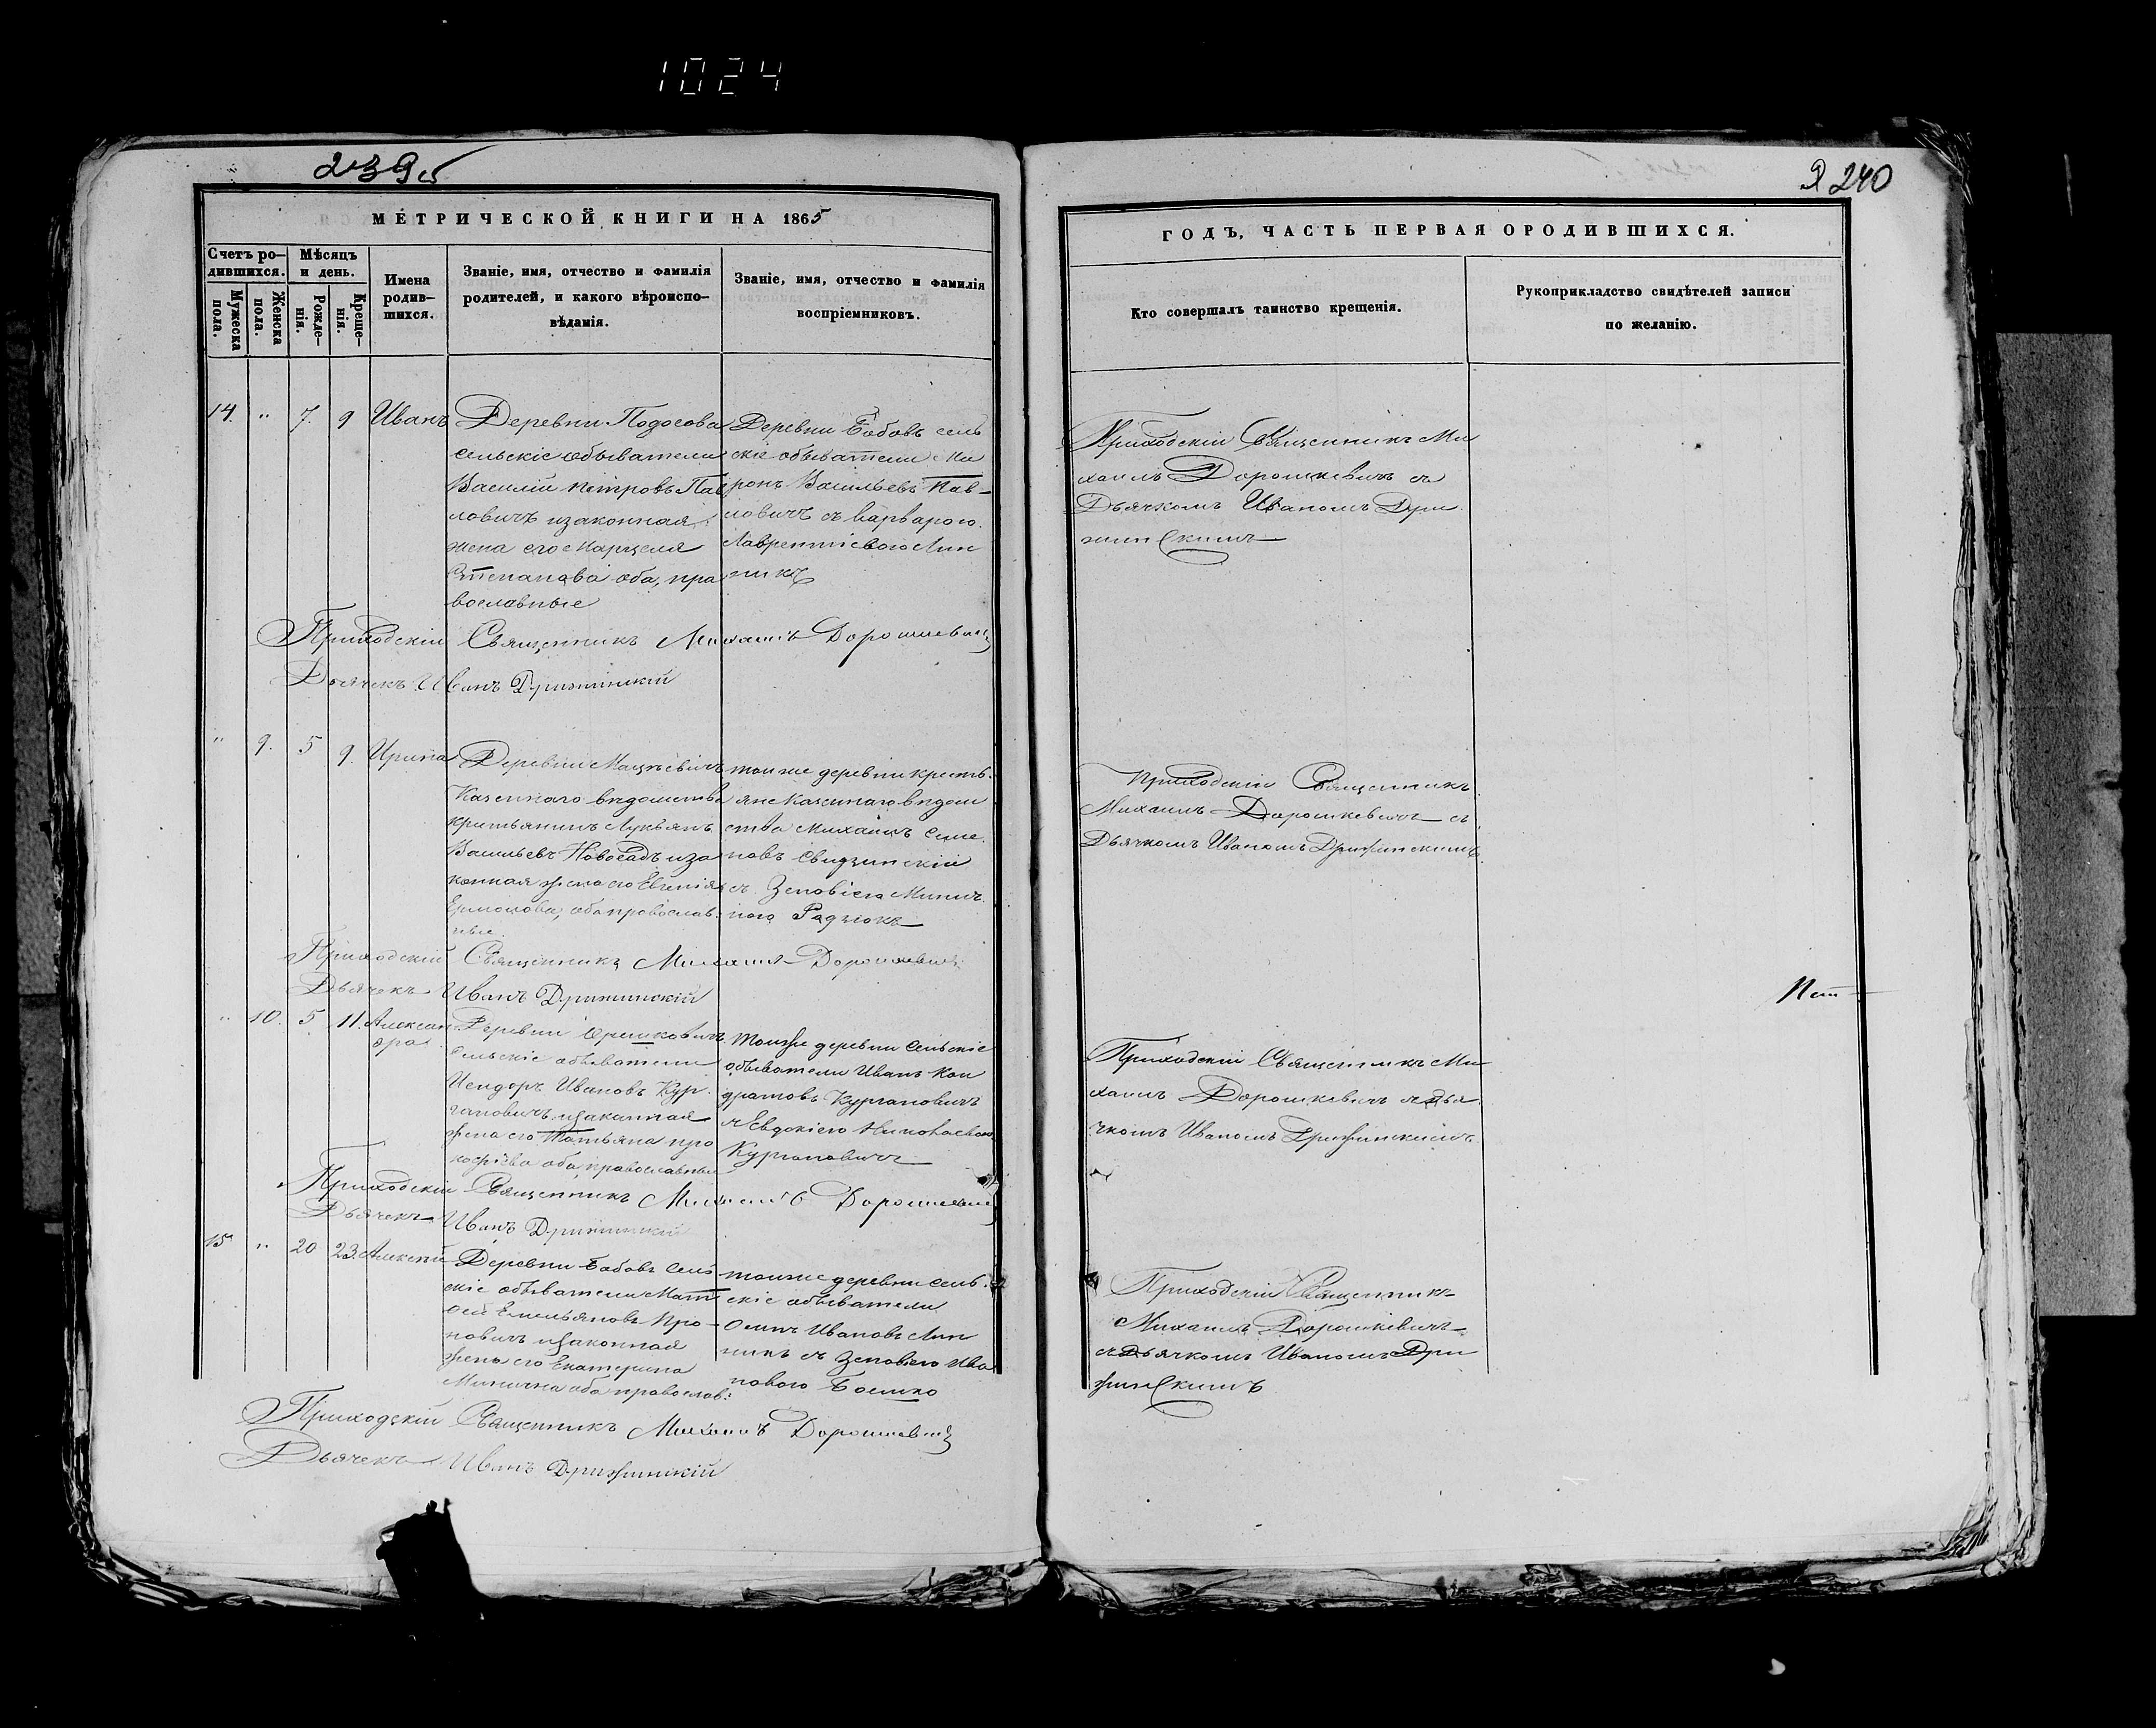 1024
239б
Я 240
МЕТРИЧЕСКОЙ КНИГИ НА 1865
Счетъ ро-
дившихся.
Мужеска
пола.
Женска
пола.
Мѣсяцъ
и день.
Рожде-
нія.
Креще-
нія.
Имена
родив-
шихся.
Званіе, имя, отчество и фамилія
родителей, и какого вѣроиспо-
вѣданія.
Званіе, имя, отчество и фамилія
воспріемниковъ.
14. " 7. 9 Иванъ
Деревни Подосова
сельскіе обыватели
Василій Петровъ Пав
ловичъ и законная
жена его
Степанова оба, пра
вославные
Деревни Бабовъ сель
скіе обыватели Ми
ронъ Васильевъ Пав-
ловичъ съ Варварою
Лаврентіевою Лин
никъ
Приходскій Священникъ Михаилъ Дорошкевичъ
Дьячекъ Иванъ
" 9. 5 9. Ирина
Деревни
Казеннаго вѣдомства
крестьянинъ Лукьянъ
Васильевъ Новосадъ и за
конная жена его Евгенія
Ермолова, оба православ-
ные.
той же деревни кресть-
яне казеннаго вѣдом
ства Михаилъ Семе
новъ Свидзинскій
съ Зеновіею Минич
ною Радзюкъ
Приходскій Священникъ Михаилъ Дорошкевичъ
Дьячекъ Иванъ
" 10. 5 11. Алексан
дра
Деревни Орешковичъ
сельскіе обыватели
Исидоръ Ивановъ Кур-
гановичъ и законная
жена его Татьяна Про
кофіева оба, православные
той же деревни сельскіе
обыватели Иванъ Кон
дратовъ Кургановичъ
съ Евдокіею Николаевою
Кургановичъ
Приходскій Священникъ Михаилъ Дорошкевичъ
Дьячекъ Иванъ
15 " 20 23. Алексѣй
Деревни Бабовъ сель
скіе обыватели Мат
ѳей Емельяновъ Про-
новичъ и законная
жена его Екатерина
Минична оба православ:
той же деревни сель-
скіе обыватели
Осипъ Ивановъ Лин
никъ съ Зеновіею Ива
новою
Приходскій Священникъ Михаилъ Дорошкевичъ
Дьячекъ Иванъ
ГОДЪ, ЧАСТЬ ПЕРВАЯ О РОДИВШИХСЯ.
Кто совершалъ таинство крещенія.
Рукоприкладство свидѣтелей записи
по желанію.
Приходскій Священникъ Ми
хаилъ Дорошкевичъ съ
Дьячкомъ Иваномъ Дри
жинскимъ
Приходскій Священникъ
Михаилъ Дорошкевичъ съ
Дьячкомъ Иваномъ Дрижинскимъ
Приходскій Священникъ Ми
хаилъ Дорошкевичъ съ Дья
чкомъ Иваномъ Дрижинскимъ
Приходскій Священникъ
Михаилъ Дорошкевичъ
съ Дьячкомъ Иваномъ Дри
жинскимъ